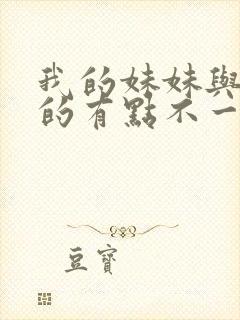 我的妹妹與
的有點不一
豆寶